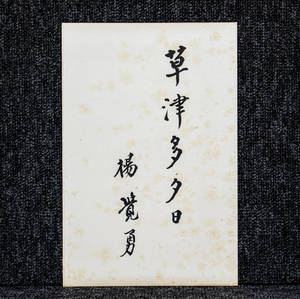 草津多夕日
楊覚勇